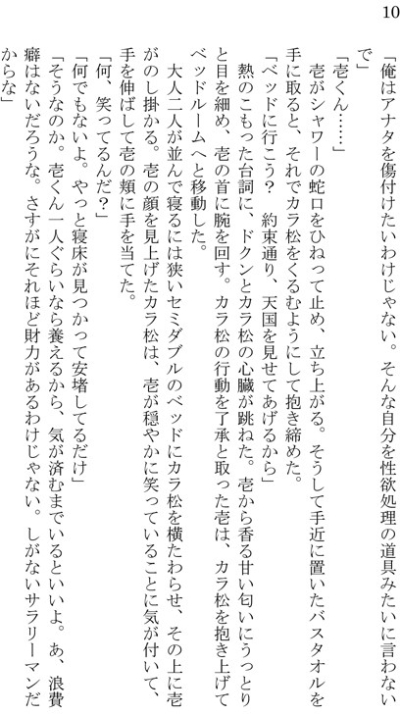 10
「俺はアナタを傷付けたいわけじゃない。そんな自分を性欲処理の道具みたいに言わない
で」
「壱くん……」
壱がシャワーの蛇口をひねって止め、立ち上がる。そうして手近に置いたバスタオルを
手に取ると、それでカラ松をくるむようにして抱き締めた。
「ベッドに行こう？　約束通り、天国を見せてあげるから」
熱のこもった台詞に、ドクンとカラ松の心臓が跳ねた。壱から香る甘い匂いにうっとり
と目を細め、壱の首に腕を回す。カラ松の行動を了承と取った壱は、カラ松を抱き上げて
ベッドルームへと移動した。
大人二人が並んで寝るには狭いセミダブルのベッドにカラ松を横たわらせ、その上に壱
がのし掛かる。壱の顔を見上げたカラ松は、壱が穏やかに笑っていることに気が付いて、
手を伸ばして壱の頬に手を当てた。
「何、笑ってるんだ？」
「何でもないよ。やっと寝床が見つかって安堵してるだけ」
「そうなのか。壱くん一人ぐらいなら養えるから、気が済むまでいるといいよ。あ、浪費
癖はないだろうな。さすがにそれほど財力があるわけじゃない。しがないサラリーマンだ
からな」